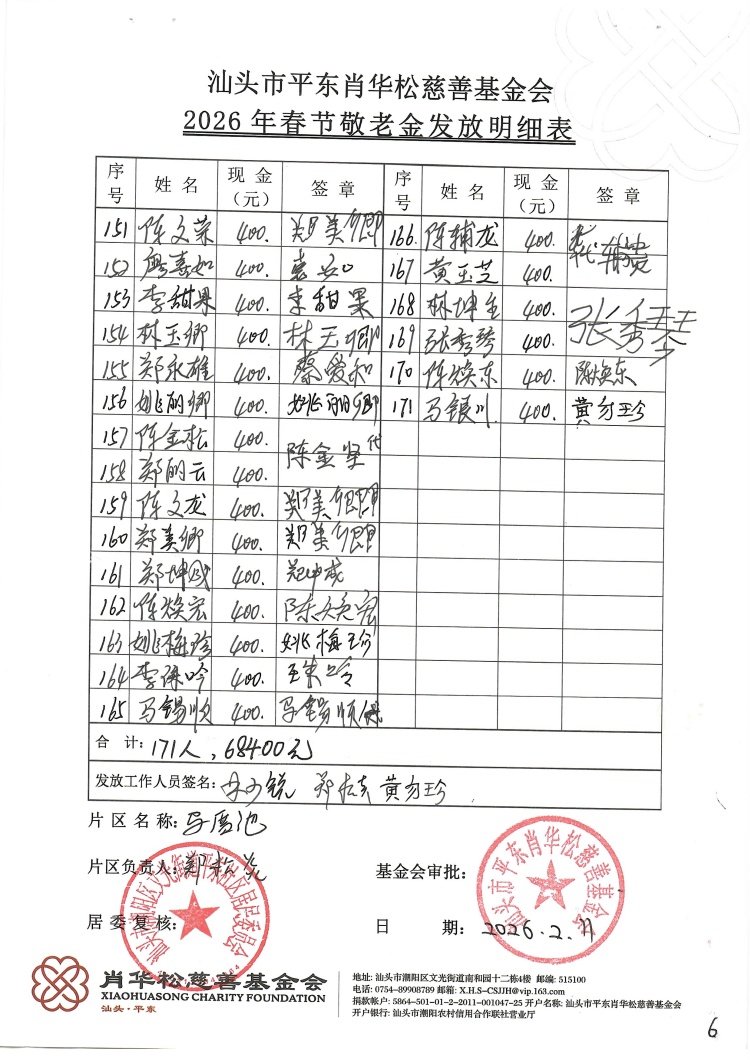 汕头市平东肖华松慈善基金会
2026年春节敬老金发放明细表
序号 姓名 现金(元) 签章 序号 姓名 现金(元) 签章
151 陈文荣 400. 郑美卿 166. 陈辅龙 400. 代
152 廖嘉如 400. 167 黄玉芝 400.
153 李甜果 400. 李甜果 168 林坤 400.
154 林玉卿 400. 林玉卿 169 张秀琴 400. 张秀琴
155 郑永雄 400. 蔡爱和 170 陈焕东 400. 陈焕东
156 姚丽卿 400. 姚丽卿 171 马银川 400. 黄
157 陈金松 400. 陈金坚代
158 郑丽云 400.
159 陈文龙 400. 郑美卿
160 郑美卿 400. 郑美卿
161 郑坤成 400. 郑坤成
162 陈焕宏 400. 陈焕宏
163 姚梅珍 400. 姚梅珍
164 李 吟 400.
165 马锡顺 400. 马锡顺
合 计: 171人,68400元
发放工作人员签名: 黄
片区名称:
片区负责人: 郑 基金会审批:
居委复核: 日 期: 2026.2.11
汕头市潮阳区文光街道平东社区居民委员会
汕头市平东肖华松慈善基金会
肖华松慈善基金会
XIAOHUASONG CHARITY FOUNDATION
汕头·平东
地址: 汕头市潮阳区文光街道南和园十二栋4楼 邮编: 515100
电话: 0754-89908789 邮箱: X.H.S-CSJJH@vip.163.com
捐款帐户: 5864-501-01-2-2011-001047-25 开户名称: 汕头市平东肖华松慈善基金会
开户银行: 汕头市潮阳农村信用合作联社营业厅
6